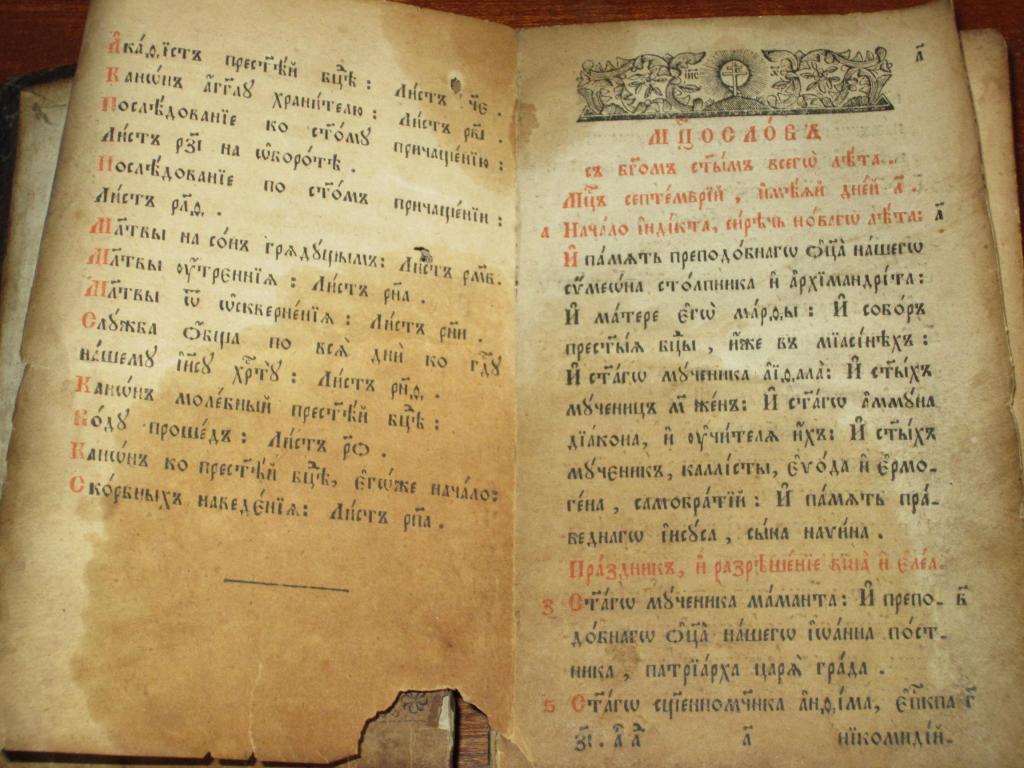 А҆ка́ѳїстъ прест҃ѣ́й бц҃ѣ : Ли́стъ ч҃є .
Канѡ́нъ а҆́гг҃лꙋ храни́телю : Ли́стъ рк҃і .
Послѣ́дованїе ко ст҃о́мꙋ причаще́нїю :
Ли́стъ рз҃і на ѡ҆боро́тѣ .
Послѣ́дованїе по ст҃о́мъ причаще́нїи :
Ли́стъ рл҃ѳ .
Мл҃твы на со́нъ грядꙋ́щымъ : Ли́стъ рм҃в .
Мл҃твы ᲂу҆́треннїя : Ли́стъ рн҃а .
Мл҃твы ѿ ѡ҆скверне́нїя : Ли́стъ рн҃и .
Слꙋ́жба ѻ҆́бща по всѧ̀ дни̑ ко гд҇ꙋ
на́шемꙋ і҆и҃сꙋ хрⷭ҇тꙋ̀ : Ли́стъ рн҃ѳ .
Канѡ́нъ моле́бный прест҃ѣ́й бц҃ѣ :
Во́дꙋ проше́дъ : Ли́стъ
Канѡ́нъ ко прест҃ѣ́й бц҃ѣ , є҆гѡ́же нача́ло :
Ско́рбныхъ наведе́нїя : Ли́стъ рп҃а .
І҆И҃С ХС
а҃
МЦ҃ОСЛО́ВЪ
съ бг҃омъ ст҃ы́мъ всегѡ̀ лѣ́та .
Мц҃ъ септе́мврїй , и҆мѣ́яй дне́й л҃ .
а Нача́ло і҆нді́кта , си́рѣчь но́вагѡ лѣ́та : а҃
И҆ па́мять преподо́бнагѡ ѻ҆ц҃а̀ на́шегѡ
сѷмеѡ́на сто́лпника и҆ а҆рхїмандрі́та :
И҆ ма́тере є҆гѡ̀ ма́рѳы : И҆ собо́ръ
прест҃ы́я бц҃ы , и҆́же въ мїасі́нѣхъ :
И҆ ст҃а́гѡ мꙋ́ченика а҆їѳала̀ : И҆ ст҃ы́хъ
мꙋ́ченицъ м҃ же́нъ : И҆ ст҃а́гѡ а҆ммꙋ́на
дїа́кона , и҆ ᲂу҆чи́телѧ и҆́хъ : И҆ ст҃ы́хъ
мꙋ́ченикъ , каллі́сты , є҆ѵо́да и҆ є҆рмо-
ге́на , самобра́тїй : И҆ па́мять пра́-
веднагѡ і҆исꙋ́са , сы́на наѵи́на .
Пра́здникъ , и҆ разрѣше́нїе вїна̀ и҆ є҆ле́а .
з Ст҃а́гѡ мꙋ́ченика ма́манта : И҆ препо- в҃
до́бнагѡ ѻ҆ц҃а̀ на́шегѡ і҆ѡа́нна по́ст-
ника , патрїа́рха царѧ̀ гра́да .
ѕ Ст҃а́гѡ сщ҃енномч҃нка а҆нѳі́ма , є҆пⷭ҇кпа г҃
з҃і . а҃ л҃ а҃ нїкомиді́й-